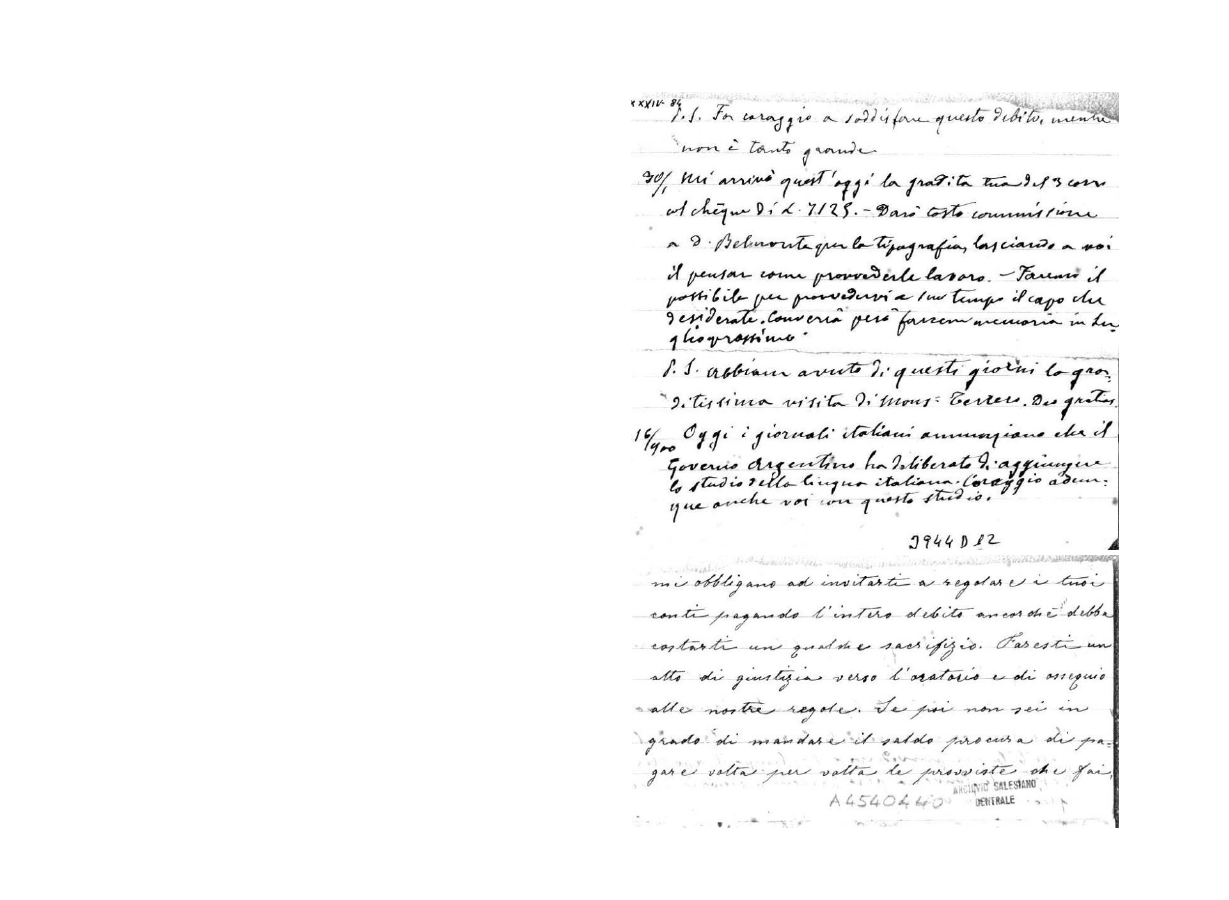 XXXIV. 84
P.S. Fa coraggio a soddisfare questo debito, mentre
non è tanto grande
30/, Mi arrivò quest'oggi la gradita tua del 3 corr
col chèque di L. 7125. - Darò tosto commissione
a D. Belmonte per la tipografia, lasciando a voi
il pensar come provvederle lavoro. - Faremo il
possibile per provvedervi a suo tempo il capo che
desiderate. Converrà però farcene memoria in Lu-
glio prossimo
P.S. Abbiam avuto di questi giorni la gra-
ditissima visita di Mons: Terrero. Deo gratias.
16/900 Oggi i giornali italiani annunziano che il
Governo Argentino ha deliberato di aggiungere
lo studio della lingua italiana. Coraggio adun-
que anche voi con questo studio.
3944 D 12
mi obbligano ad invitarti a regolare i tuoi
conti pagando l'intero debito ancorchè debba
costarti un qualche sacrifizio. Faresti un
atto di giustizia verso l'oratorio e di ossequio
alle nostre regole. Se poi non sei in
grado di mandare il saldo procura di pa-
gare volta per volta le provviste che fai,
A4540440
ARCHIVIO SALESIANO
CENTRALE